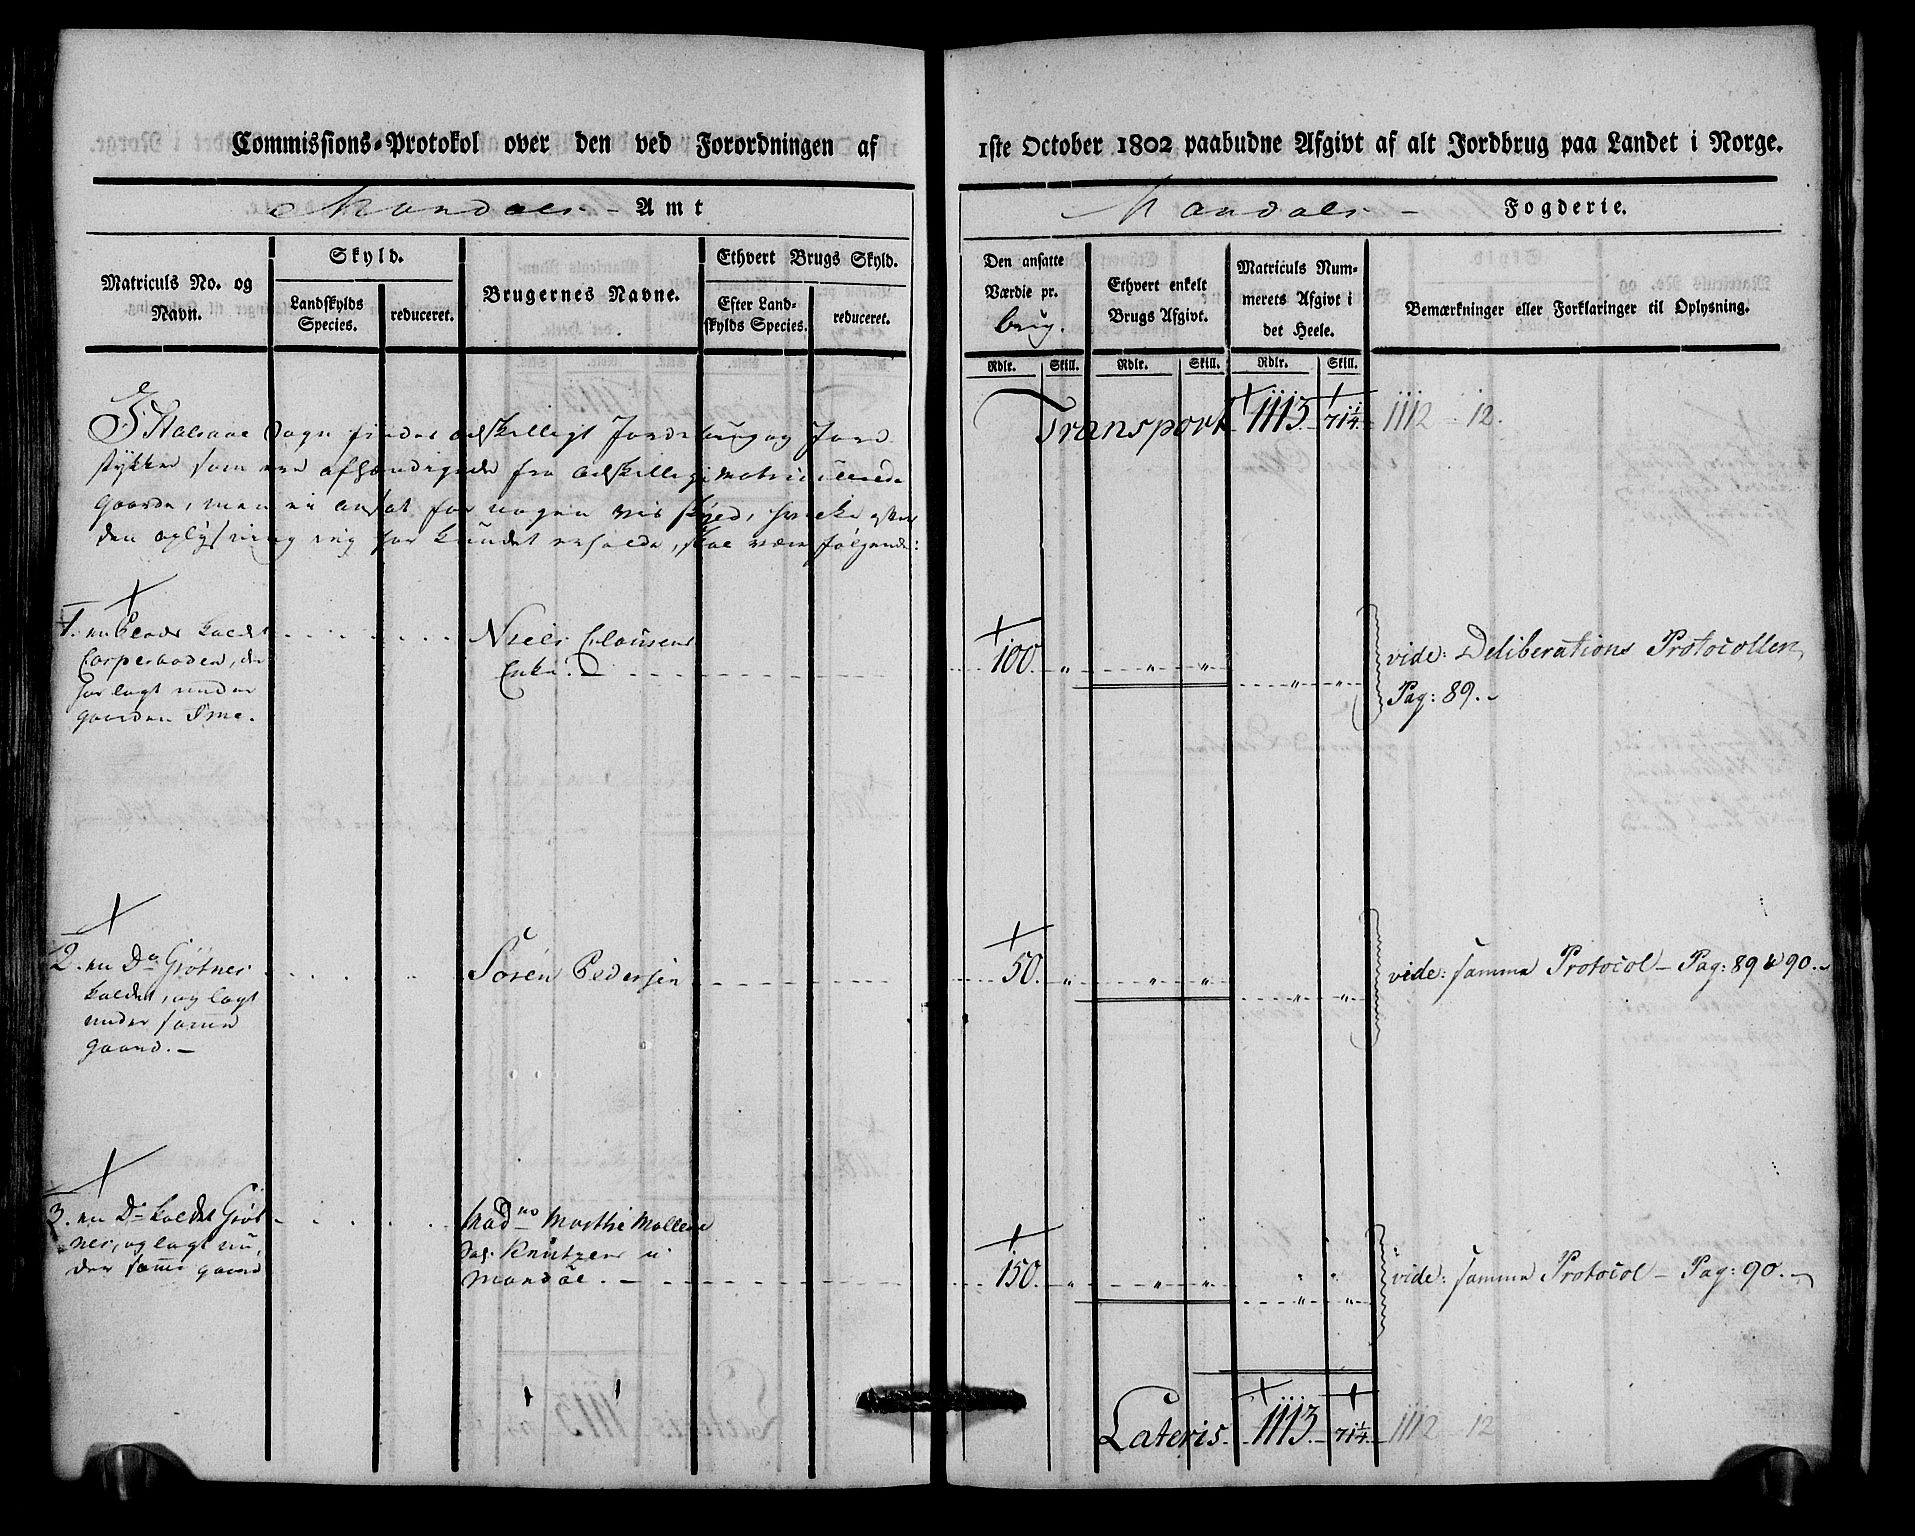 Commissions-Protokol over den ved Forordningen af
1ste October 1802 paabudne Afgivt af alt Jordbrug paa Landet i Norge.
Mandals - Amt
Mandals - Fogderie.
Matriculs No. og Navn.
Skyld.
Landskylds Species.
reduceret.
Brugernes Navne.
Ethvert Brugs Skyld.
Efter Landskylds Species.
reduceret.
Den ansatte Værdie pr. brug.
Rdlr. Skill.
Ethvert enkelt Brugs Afgivt.
Rdlr. Skill.
Matriculs Nummerets Afgivt i det Heele.
Rdlr. Skill.
Bemærkninger eller Forklaringer til Oplysning.
Transport 1113. 71¼ 1112 - 12.
I Halsaae Sogn findes adskilligt Jordebrug og Jord
stykker som ere afhændigede fra adskillige matriculerede
gaarde, men ei ansat for nogen vis skyld, hvilke efter
den oplysning jeg har kundet erholde, skal være følgende:
1. en Plads kaldet
der
lagt under
gaarden Ime.
Niels Clausens
Enke.
100. " " " " "
vide: Deliberations Protocollen
Pag: 89.
2. en Do Grøtnes
kaldet, og lagt
under samme
gaard. -
Søren Pedersen
50. " " " " "
vide: samme Protocol - Pag: 89 & 90.
3. en Do kaldet Grøt
nes, og lagt un,
der samme gaard
Mad. Marthe
Knutzen i
Mandal. -
150. " " " " "
" "
vide: samme Protocol - Pag: 90.
Lateris. 1113. 71¼ 1112 - 12